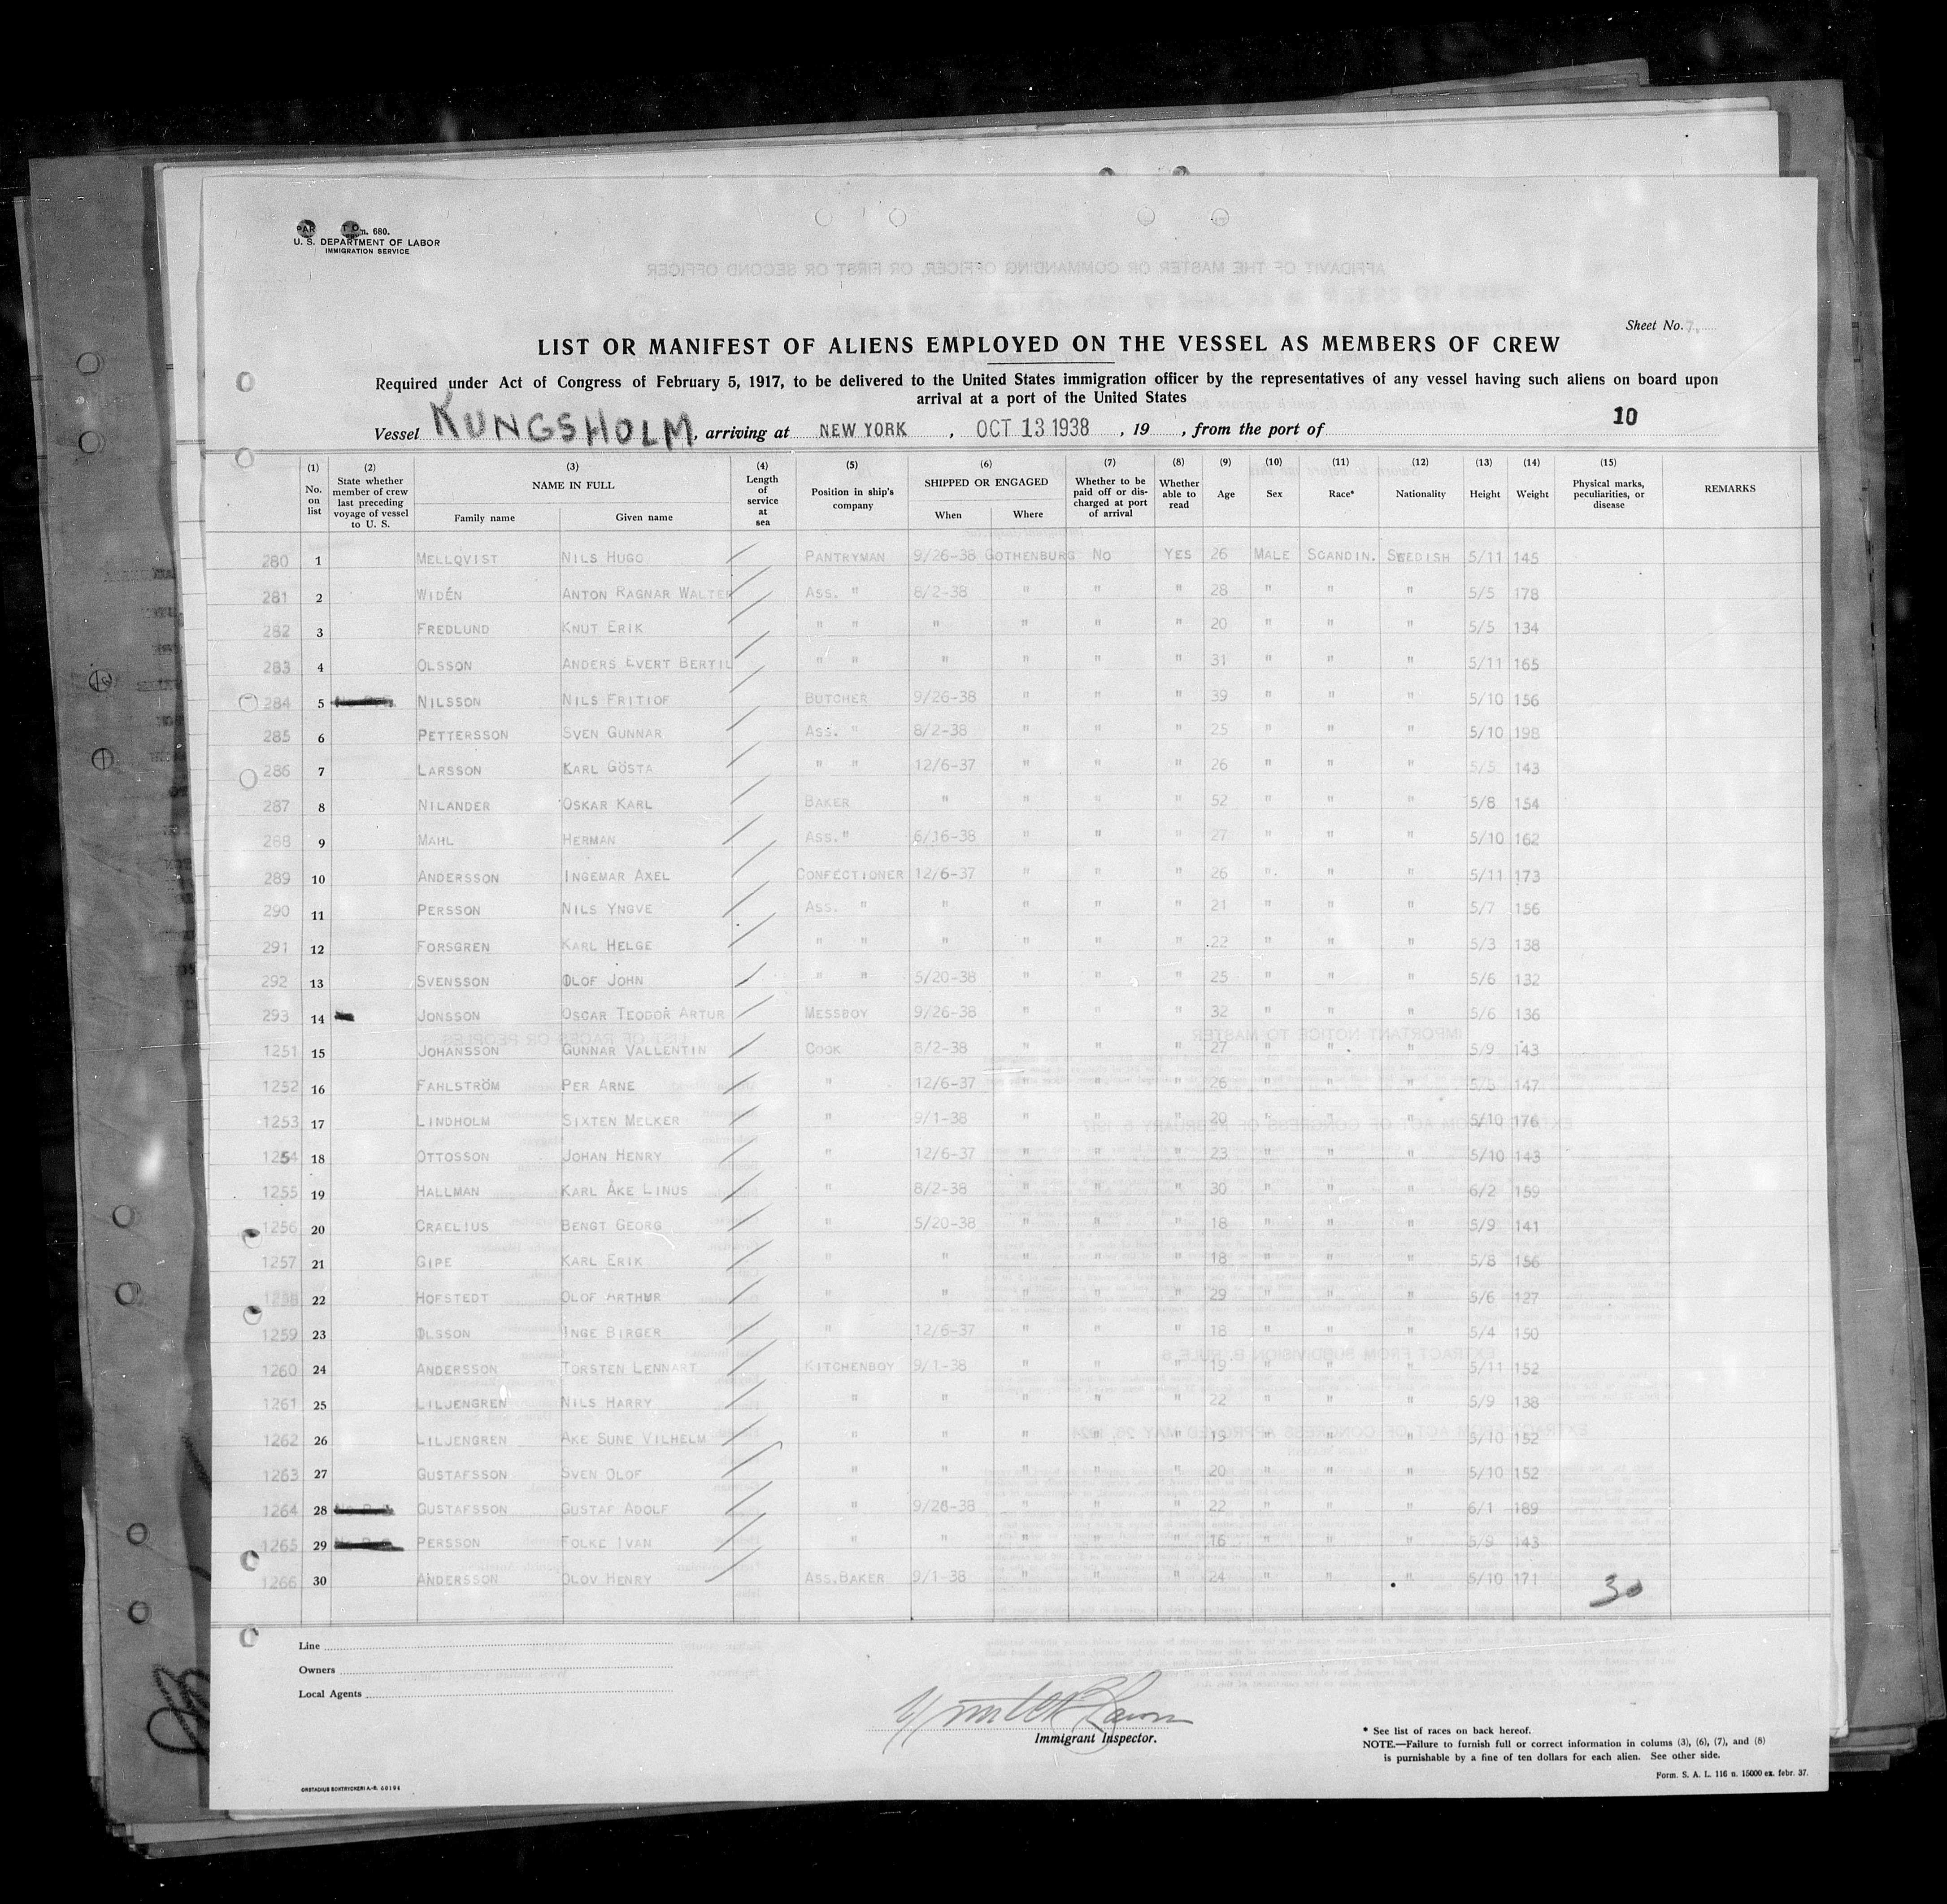 U. S. DEPARTMENT OF LABOR
IMMIGRATION SERVICE
Sheet No. 7.
LIST OR MANIFEST OF ALIENS EMPLOYED ON THE VESSEL AS MEMBERS OF CREW
Required under Act of Congress of February 5, 1917, to be delivered to the United States immigration officer by the representatives of any vessel having such aliens on board upon
arrival at a port of the United States
10
Vessel KUNGSHOLM, arriving at NEW YORK, OCT 13 1938, 19 , from the port of
(1) No. on list (2) State whether member of crew last preceding voyage of vessel to U. S. (3) NAME IN FULL Family name Given name (4) Length of service at sea (5) Position in ship's company (6) SHIPPED OR ENGAGED When Where (7) Whether to be paid off or discharged at port of arrival (8) Whether able to read (9) Age (10) Sex (11) Race* (12) Nationality (13) Height (14) Weight (15) Physical marks, peculiarities, or disease REMARKS
280 1 MELLQVIST NILS HUGO PANTRYMAN 9/26-38 GOTHENBURG NO YES 26 MALE SCANDIN. SWEDISH 5/11 145
281 2 WIDÉN ANTON RAGNAR WALTER ASS. " 8/2-38 " " " 28 " " " 5/5 178
282 3 FREDLUND KNUT ERIK " " " " " " 20 " " " 5/5 134
283 4 OLSSON ANDERS EVERT BERTIL " " " " " " 31 " " " 5/11 165
284 5 NILSSON NILS FRITIOF BUTCHER 9/26-38 " " " 39 " " " 5/10 156
285 6 PETTERSSON SVEN GUNNAR ASS. " 8/2-38 " " " 25 " " " 5/10 198
286 7 LARSSON KARL GÖSTA " " 12/6-37 " " " 26 " " " 5/5 143
287 8 NILANDER OSKAR KARL BAKER " " " " 52 " " " 5/8 154
288 9 MAHL HERMAN ASS." 6/16-38 " " " 27 " " " 5/10 162
289 10 ANDERSSON INGEMAR AXEL CONFECTIONER 12/6-37 " " " 26 " " " 5/11 173
290 11 PERSSON NILS YNGVE ASS. " " " " " 21 " " " 5/7 156
291 12 FORSGREN KARL HELGE " " " " " " 22 " " " 5/3 138
292 13 SVENSSON OLOF JOHN " " 5/20-38 " " " 25 " " " 5/6 132
293 14 JONSSON OSCAR TEODOR ARTUR MESSBOY 9/26-38 " " " 32 " " " 5/6 136
1251 15 JOHANSSON GUNNAR VALLENTIN COOK 8/2-38 " " " 27 " " " 5/9 143
1252 16 FAHLSTRÖM PER ARNE " 12/6-37 " " " 26 " " " 5/8 147
1253 17 LINDHOLM SIXTEN MELKER " 9/1-38 " " " 20 " " " 5/10 176
1254 18 OTTOSSON JOHAN HENRY " 12/6-37 " " " 23 " " " 5/10 143
1255 19 HALLMAN KARL ÅKE LINUS " 8/2-38 " " " 30 " " " 6/2 159
1256 20 CRAELIUS BENGT GEORG " 5/20-38 " " " 18 " " " 5/9 141
1257 21 GIPE KARL ERIK " " " " " 18 " " " 5/8 156
1258 22 HOFSTEDT OLOF ARTHUR " " " " " 29 " " " 5/6 127
1259 23 OLSSON INGE BIRGER " 12/6-37 " " " 18 " " " 5/4 150
1260 24 ANDERSSON TORSTEN LENNART KITCHENBOY 9/1-38 " " " 19 " " " 5/11 152
1261 25 LILJENGREN NILS HARRY " " " " " 22 " " " 5/9 138
1262 26 LILJENGREN ÅKE SUNE VILHELM " " " " " 19 " " " 5/10 152
1263 27 GUSTAFSSON SVEN OLOF " " " " " 20 " " " 5/10 152
1264 28 GUSTAFSSON GUSTAF ADOLF " 9/26-38 " " " 22 " " " 6/1 189
1265 29 PERSSON FOLKE IVAN " " " " " 16 " " " 5/9 143
1266 30 ANDERSSON OLOV HENRY ASS.BAKER 9/1-38 " " " 24 " " " 5/10 171
30
Line
Owners
Local Agents
Immigrant Inspector.
* See list of races on back hereof.
NOTE.—Failure to furnish full or correct information in colums (3), (6), (7), and (8)
is punishable by a fine of ten dollars for each alien. See other side.
Form. S. A. L. 116 n. 15000 ex. febr. 37.